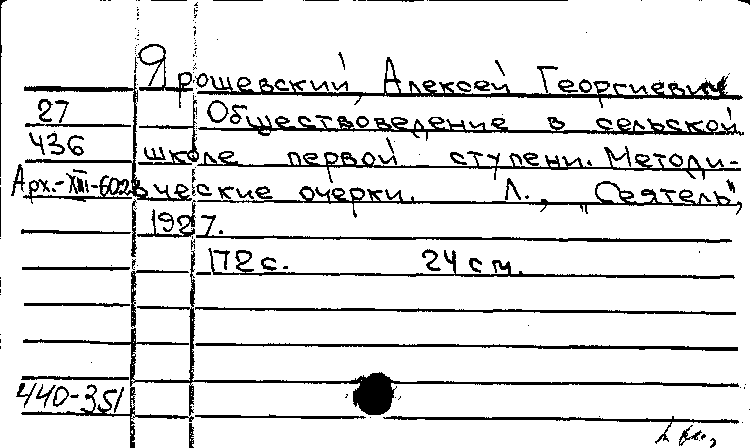 Ярошевский, Алексей Георгиевич
27 Обществоведение в сельской
436 школе первой ступени. Методи-
Арх.-XIII-6028 ческие очерки. Л., "Сеятель",
1927.
172 с. 24 см.
440-351